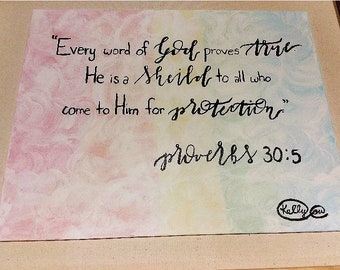 "Every word of God proves true
He is a Sheild to all who
come to Him for protection."
proverbs 30:5
Kelly